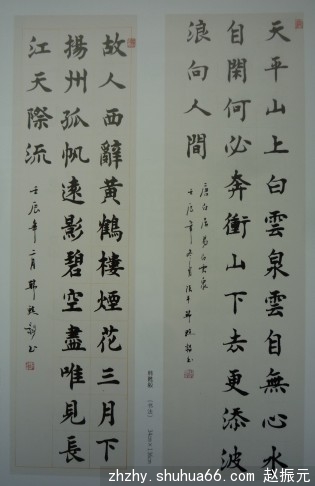 天平山上白雲泉雲自無心水
自閑何必奔衝山下去更添波
浪向人間
唐白居易白雲泉
壬辰年
故人西辭黃鶴樓煙花三月下
揚州孤帆遠影碧空盡唯見長
江天際流
壬辰年二月
zhzhy.shuhua66.com 赵振元